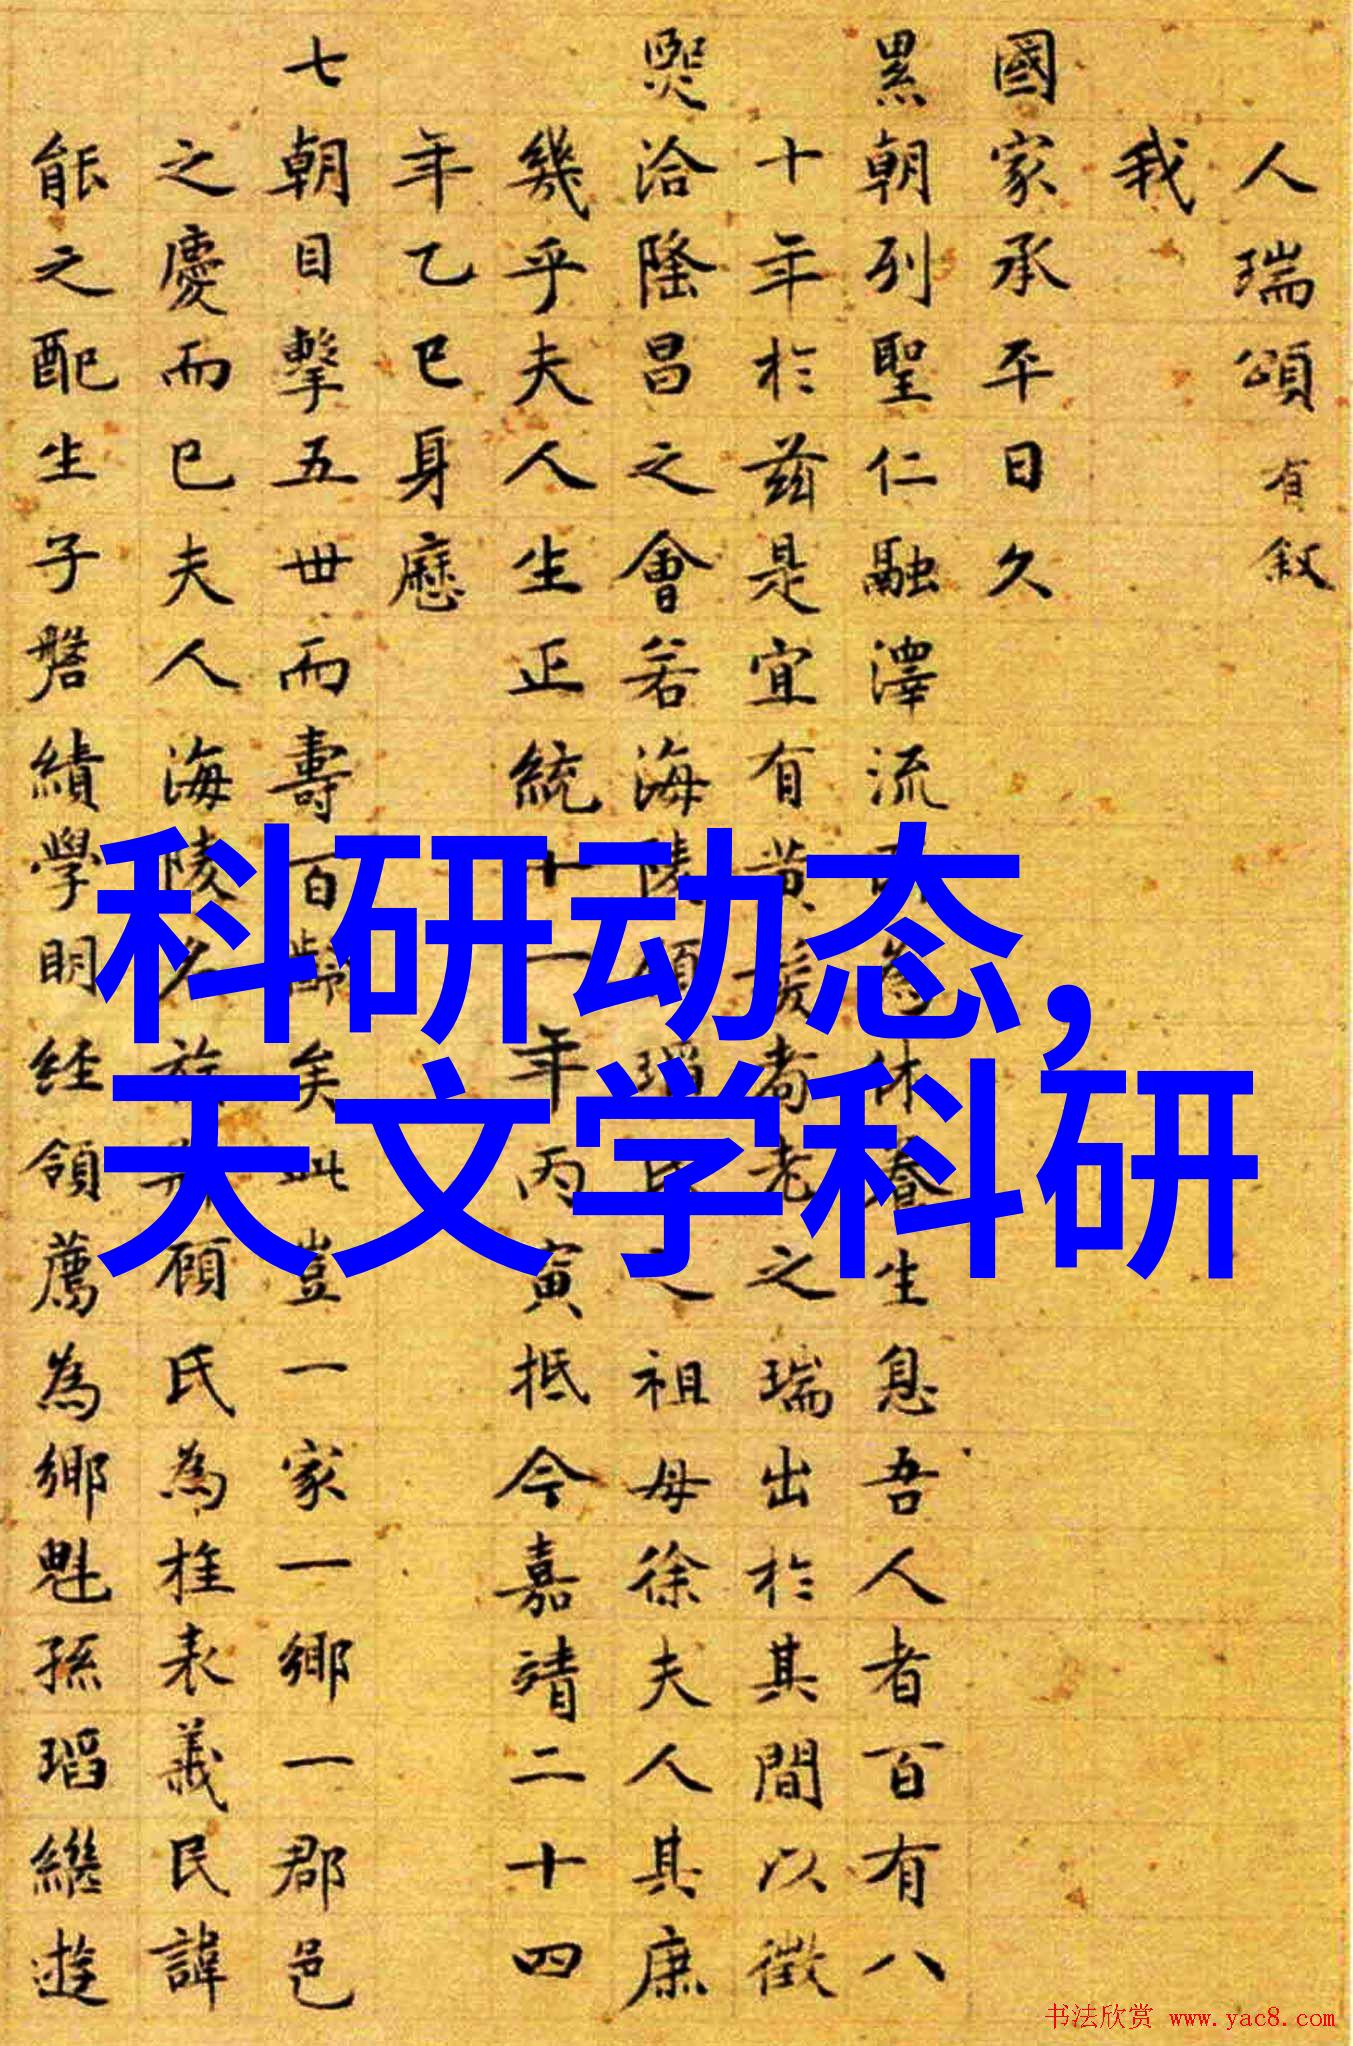 人瑞頌 有叙
我
國家承平日久
累朝列聖仁融澤流為休養生息吾人者百有八
十年於茲是宜有黄髪耇老之瑞出於其間以徵
熙洽隆昌之會若海陵顧瑫氏之祖母徐夫人其庶
幾乎夫人生正統十一年丙寅抵今嘉靖二十四
年乙巳身歷
七朝目擊五世而壽百齡矣此豈一家一鄉一郡邑
之慶而已夫人海陵名族顧氏為旌表義民諱
能之配生子磐績學明經領薦為鄉魁孫瑫繼遊
科研动态,
天文学科研
书法欣赏 www.yac8.com